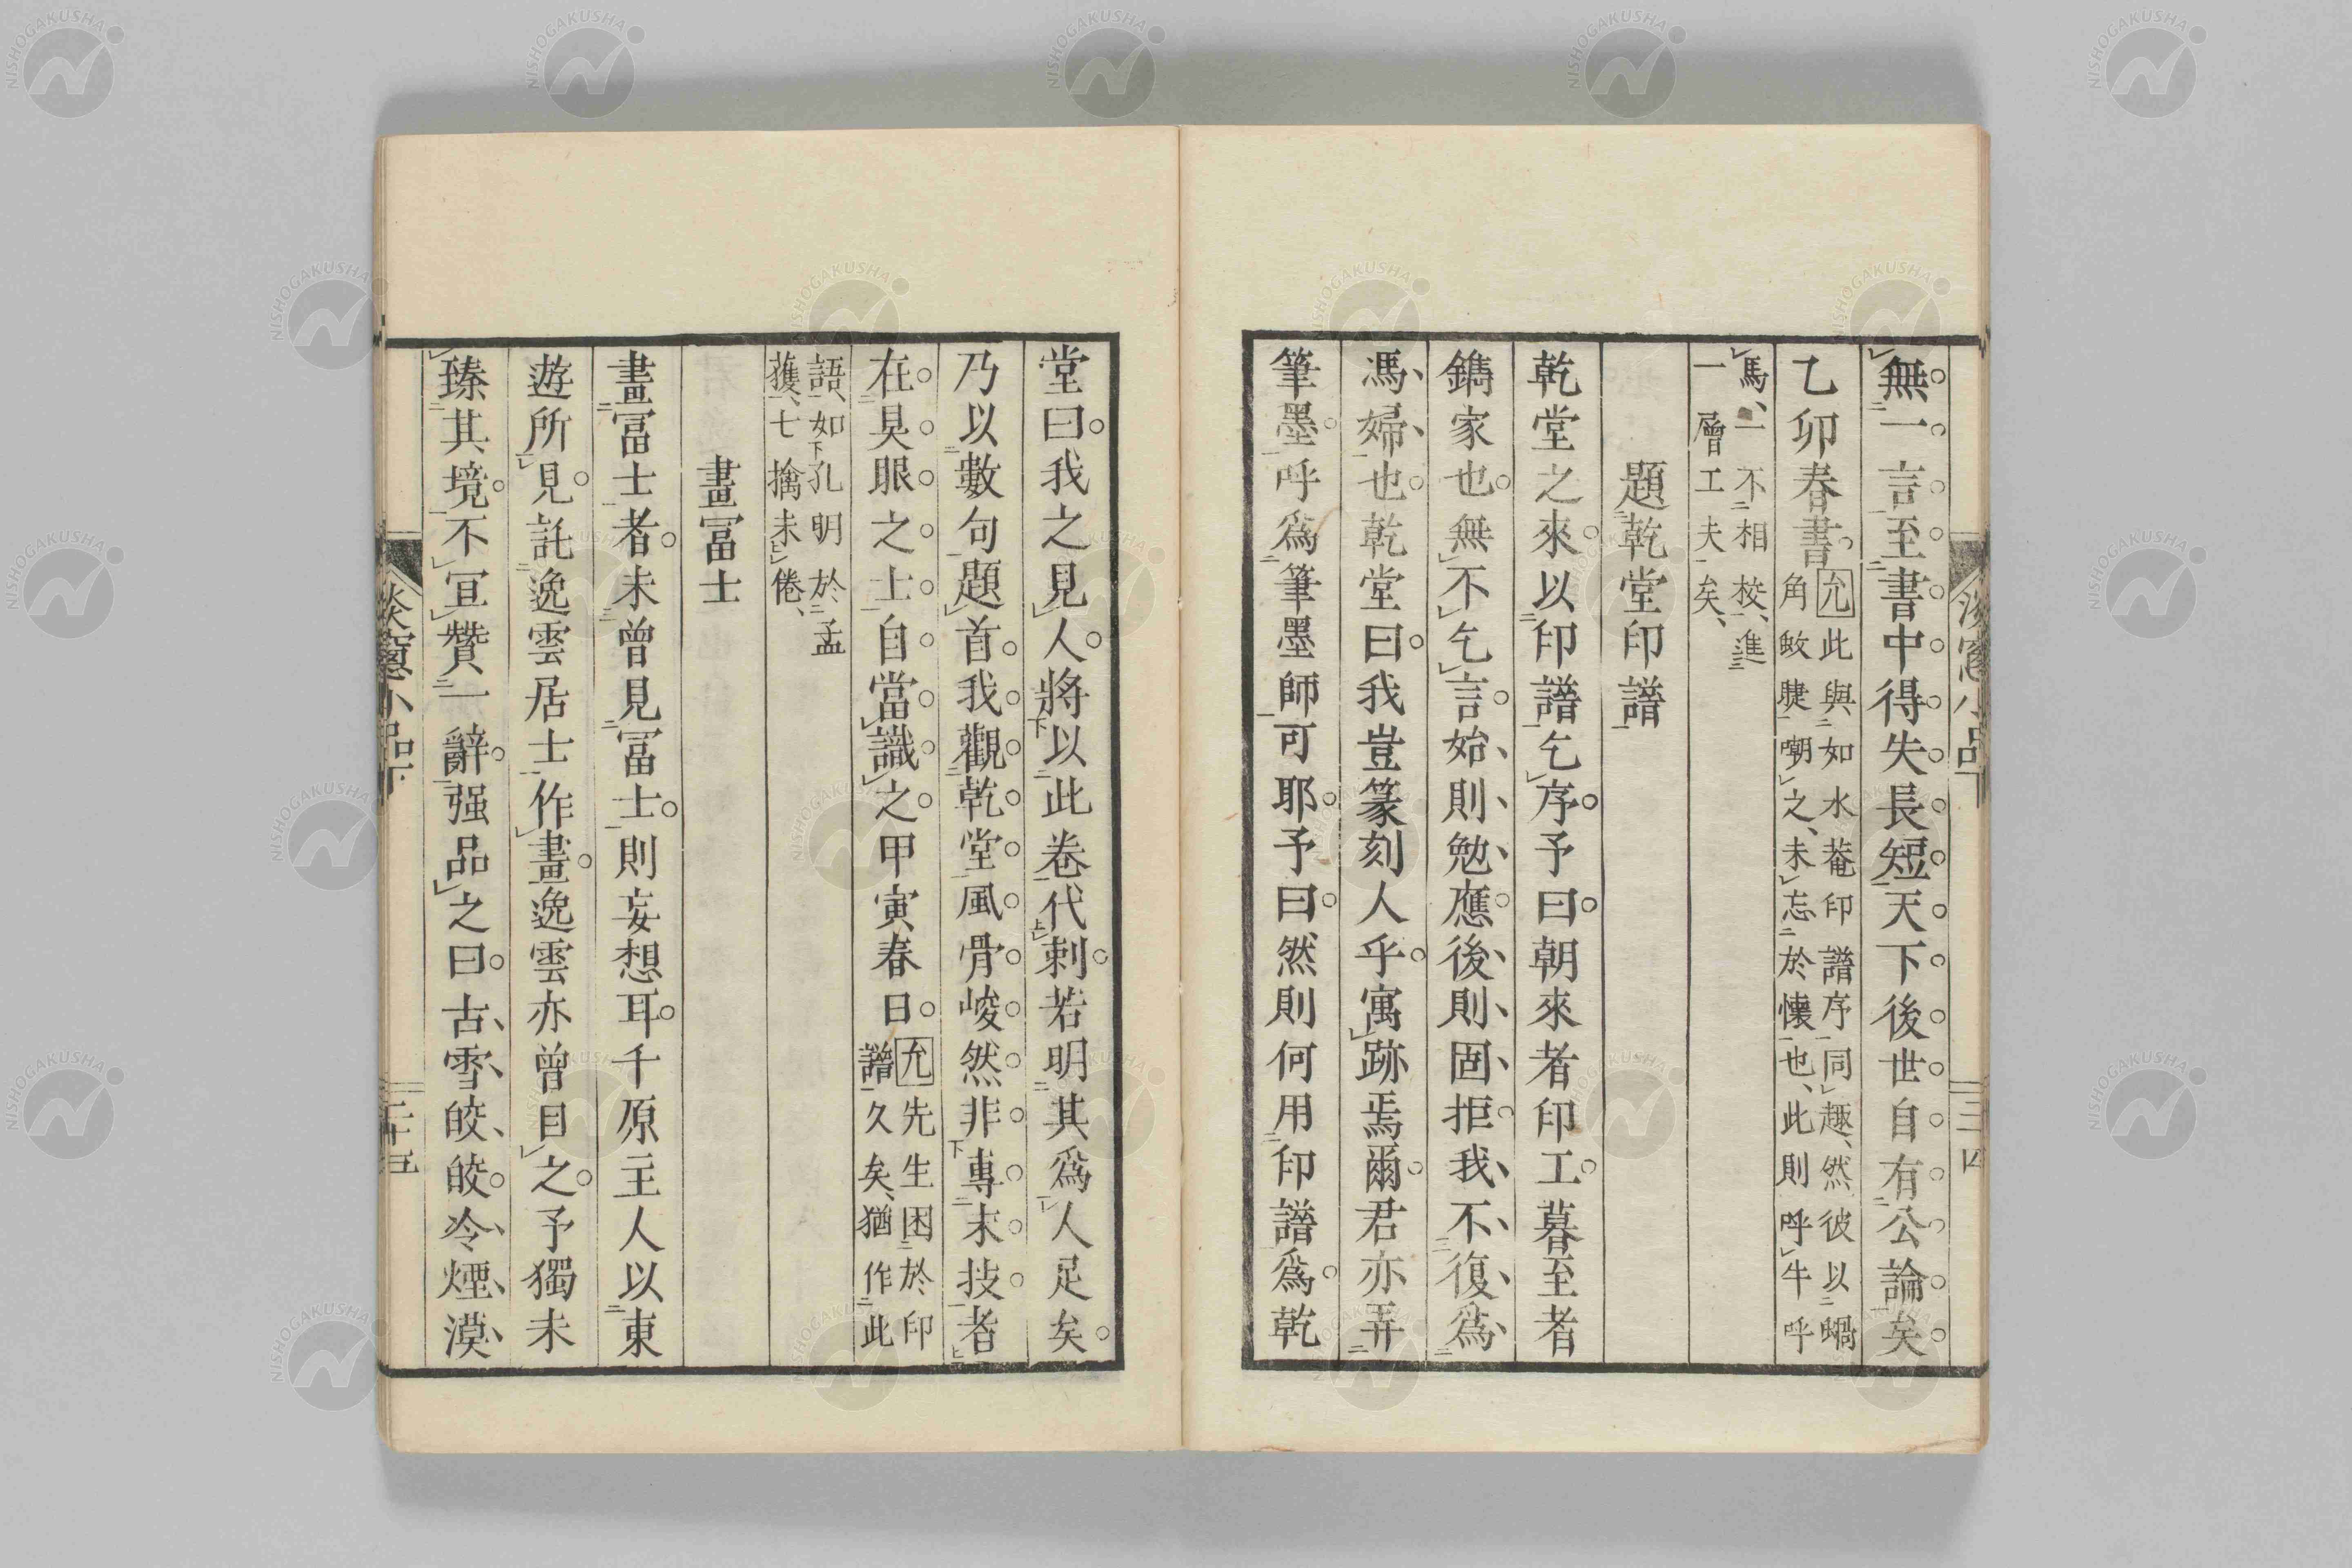 無一言至書中得失長短天下後世自有公論矣
乙卯春書。允此與如水菴印譜序同趣、然彼以蝸
角蚊睫嘲之、未忘於懷也、此則呼牛呼
馬、一不相校、進
一層工夫矣、
題乾堂印譜
乾堂之來。以印譜乞序。予曰。朝來者印工。暮至者
鐫家也。無不乞言。始、則、勉、應。後、則、固、拒。我、不、復、爲、
馮、婦、也。乾堂曰。我豈篆刻人乎。寓跡焉爾。君亦弄
筆墨。呼爲筆墨師可耶。予曰。然則何用印譜爲。乾
堂曰。我之見人。將以此卷代刺。若明其爲人足矣。
乃以數句題首。我觀乾堂。風骨峻然。非專末技者。
在具眼之士。自當識之。甲寅春日。允先生困於印
譜久矣、猶作此
語、如孔明於孟
獲、七擒未倦、
畫冨士
畫冨士者。未曾見冨士。則妄想耳。千原主人以東
遊所見。託逸雲居士作畫。逸雲亦曾目之。予獨未
臻其境。不宜贊一辭。强品之曰。古、雪、皎、皎。冷、煙、漠、
談窻小品下
二十五
NISHOGAKUSHA